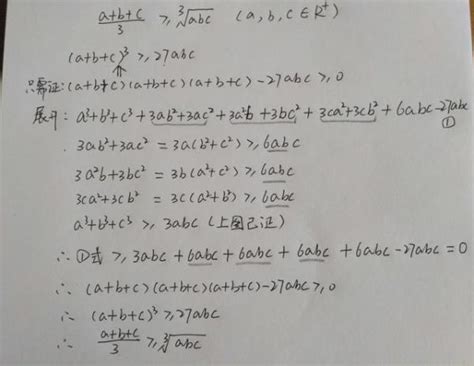 (a+b+c)/3 ≥ ∛abc (a,b,c∈R⁺)
(a+b+c)³ ≥ 27abc
⇑
只需证: (a+b+c)(a+b+c)(a+b+c)-27abc ≥ 0
展开: a³+b³+c³+3ab²+3ac²+3a²b+3bc²+3ca²+3cb²+6abc-27abc
①
3ab²+3ac² = 3a(b²+c²) ≥ 6abc
3a²b+3bc² = 3b(a²+c²) ≥ 6abc
3ca²+3cb² = 3c(a²+b²) ≥ 6abc
a³+b³+c³ ≥ 3abc (上图已证)
∴ ①式 ≥ 3abc+6abc+6abc+6abc+6abc-27abc=0
∴ (a+b+c)(a+b+c)(a+b+c)-27abc ≥ 0
∴ (a+b+c)³ ≥ 27abc
∴ (a+b+c)/3 ≥ ∛abc